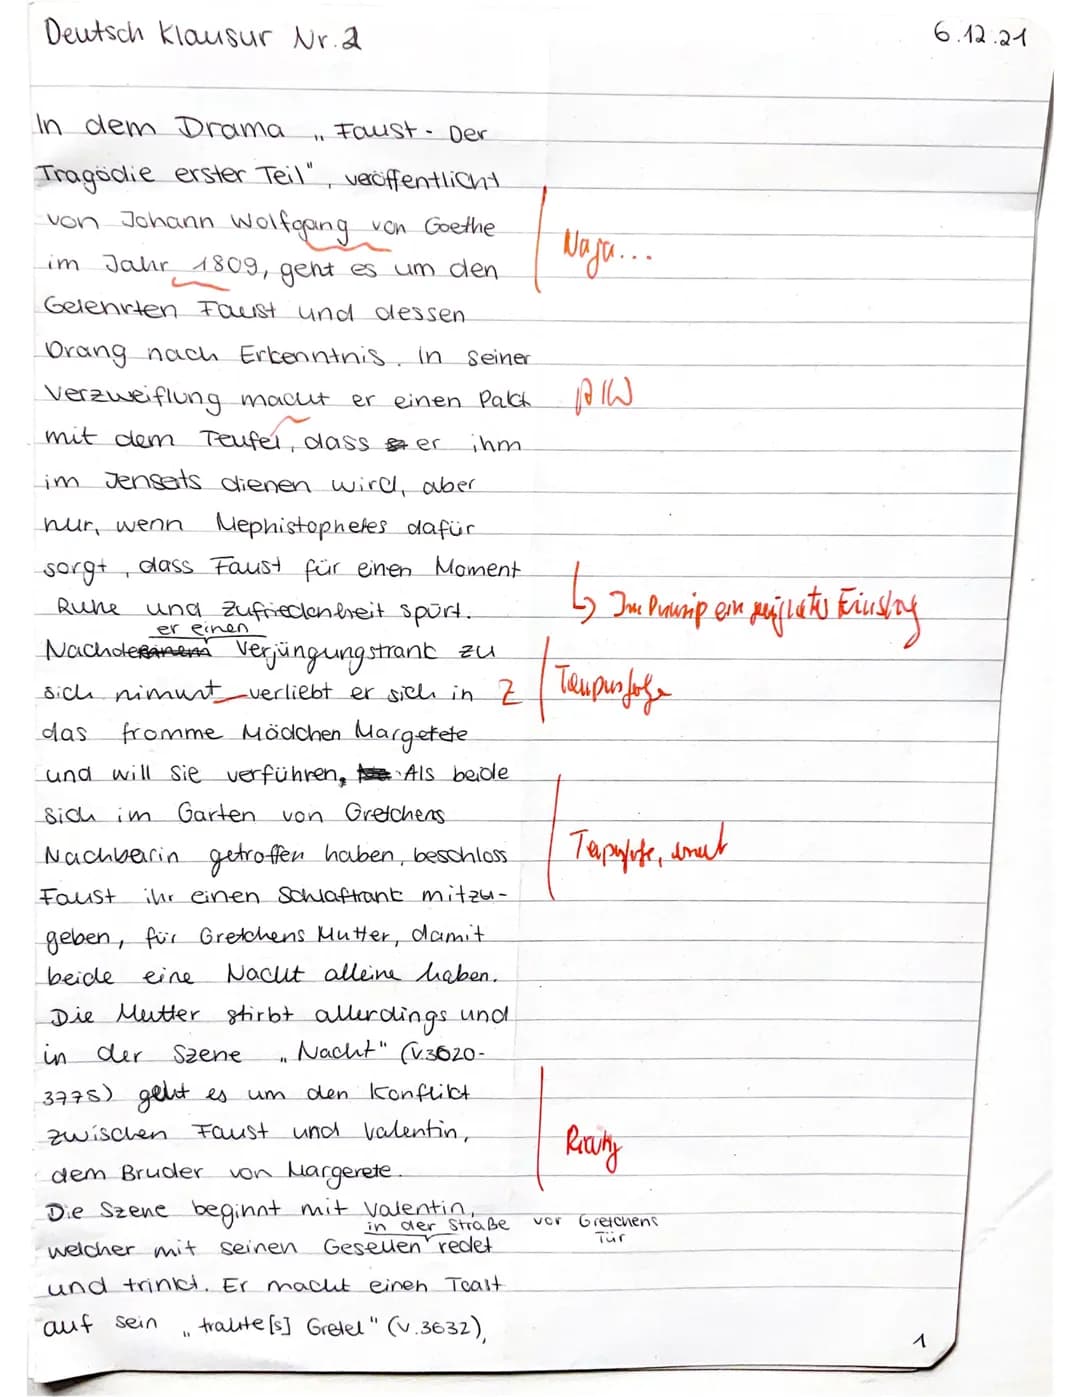 Deutsch Klausur Nr. 2
6.12.21
In dem Drama „Faust - Der
Tragödie erster Teil", veröffentlicht
von Johann Wolfgang von Goethe
Naja...
im Jahr 1809, geht es um den
Gelehrten Faust und dessen
Drang nach Erkenntnis. In seiner
Verzweiflung macht er einen Pakt
mit dem Teufel, dass er ihm
im Jenseits dienen wird, aber
nur, wenn Mephistopheles dafür
sorgt, dass Faust für einen Moment
Ruhe und Zufriedenheit spürt.
↳ Im Prinzip ein Einstieg
er einen
Nachdem Verjüngungstrank zu
sich nimmt verliebt er sich in Z
Tempusfolge
das fromme Mädchen Margetete
und will sie verführen. Als beide
sich im Garten von Gretchens
Nachbarin getroffen haben, beschloss
Faust ihr einen Schlaftrank mitzu-
geben, für Gretchens Mutter, damit
beide eine Nacht alleine haben.
Die Mutter stirbt allerdings und
in der Szene „Nacht" (V.3620-
3775) geht es um den Konflikt
zwischen Faust und Valentin,
Richtig
dem Bruder von Margerete.
Die Szene beginnt mit Valentin,
in der Straße vor Gretchens
Tür
welcher mit seinen Gesellen redet
und trinkt. Er macht einen Toast
auf sein „traute[s] Gretel" (V.3632),
1